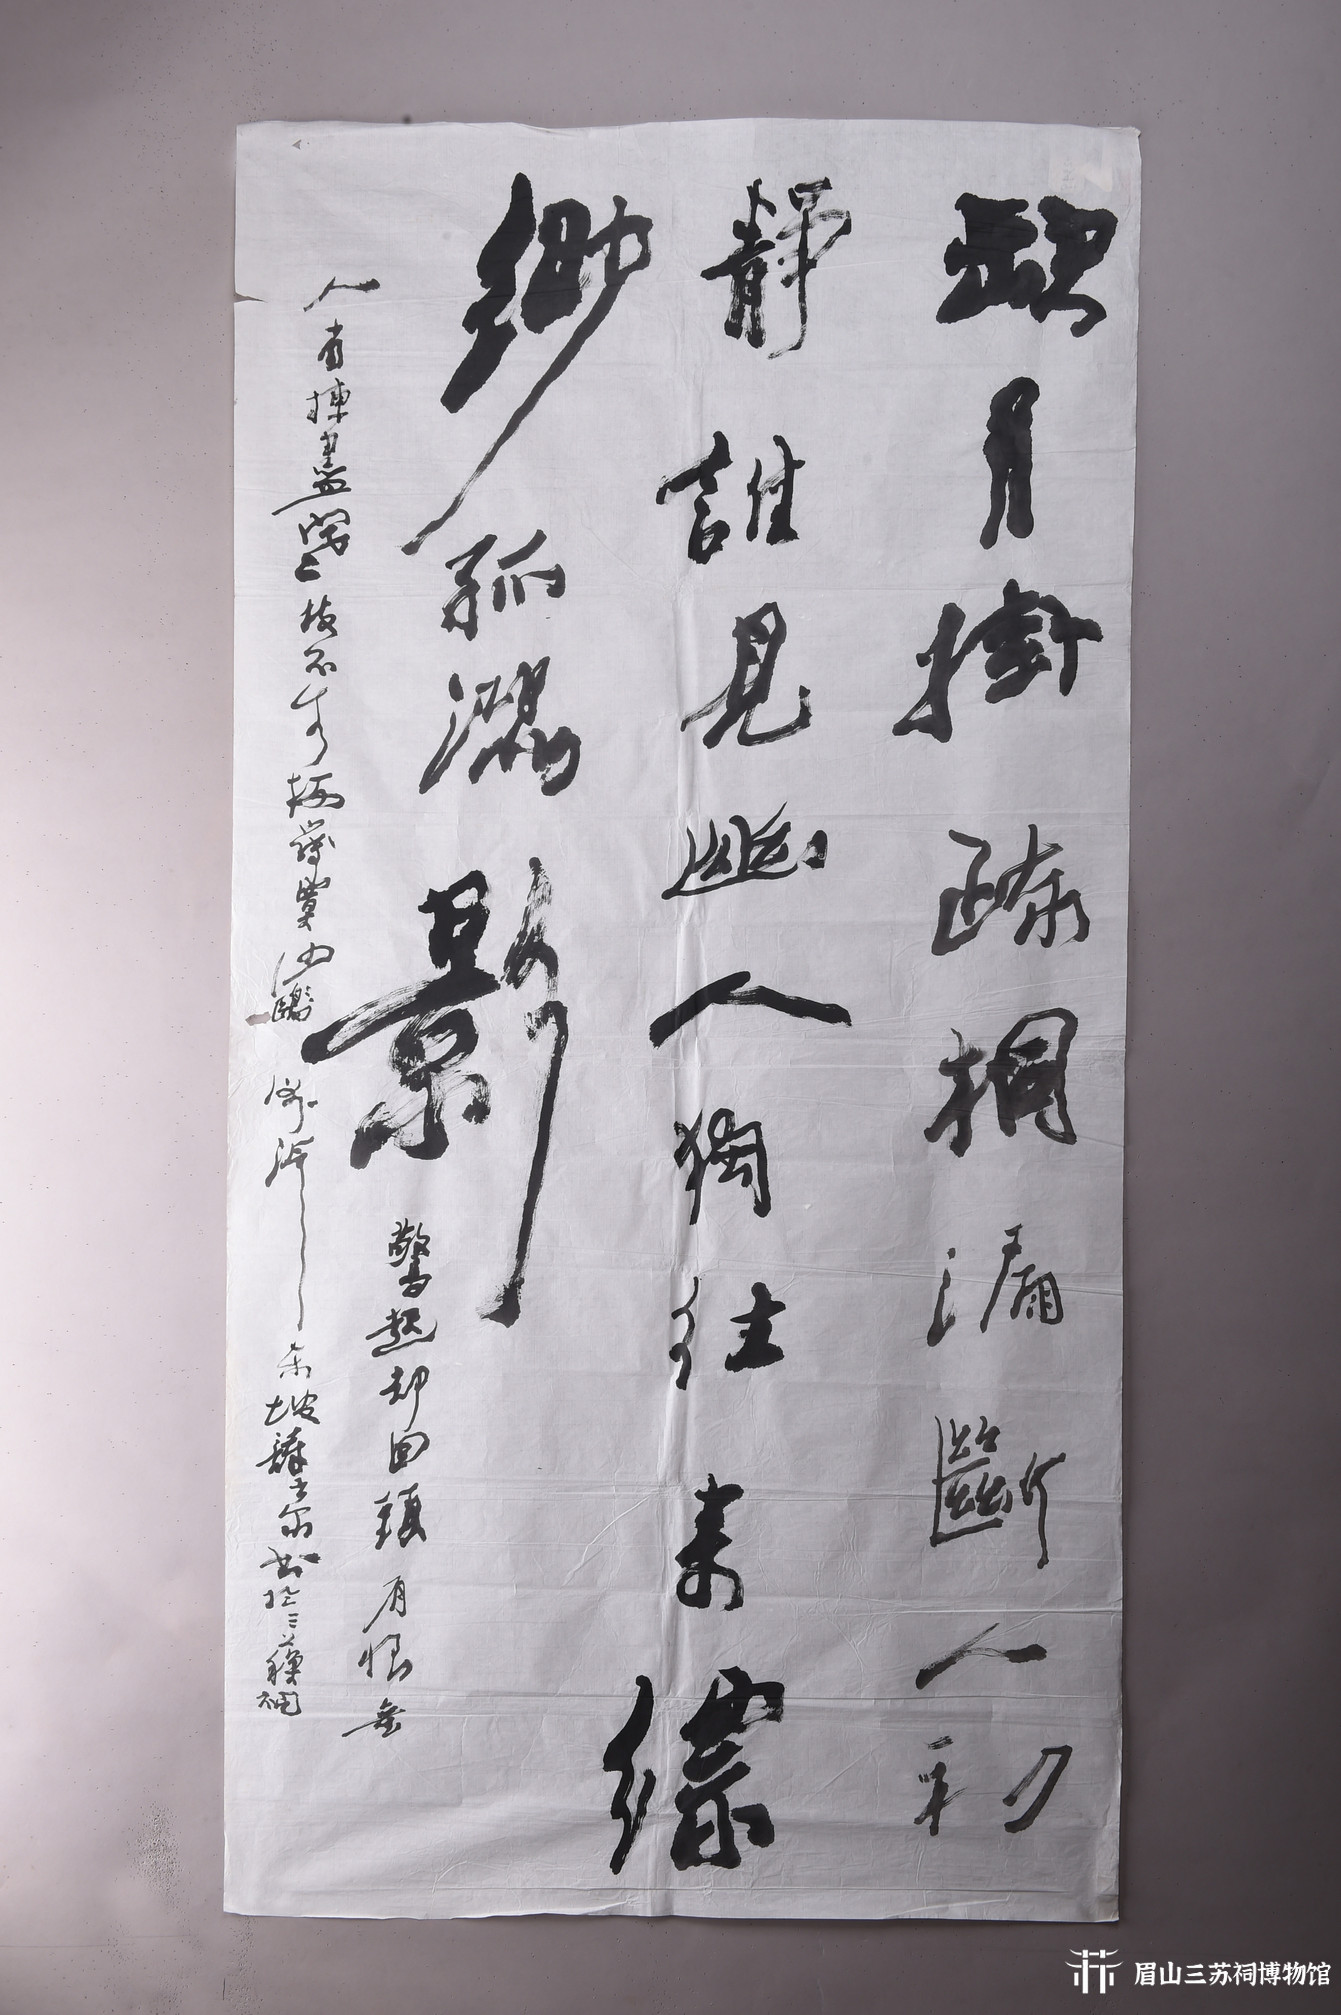 缺月掛疏桐漏斷人初
靜誰見幽人獨往來縹
緲孤鴻影驚起却回頭有恨無
人省揀盡寒枝不肯栖寂寞沙東坡書於三蘇祠
眉山三苏祠博物馆